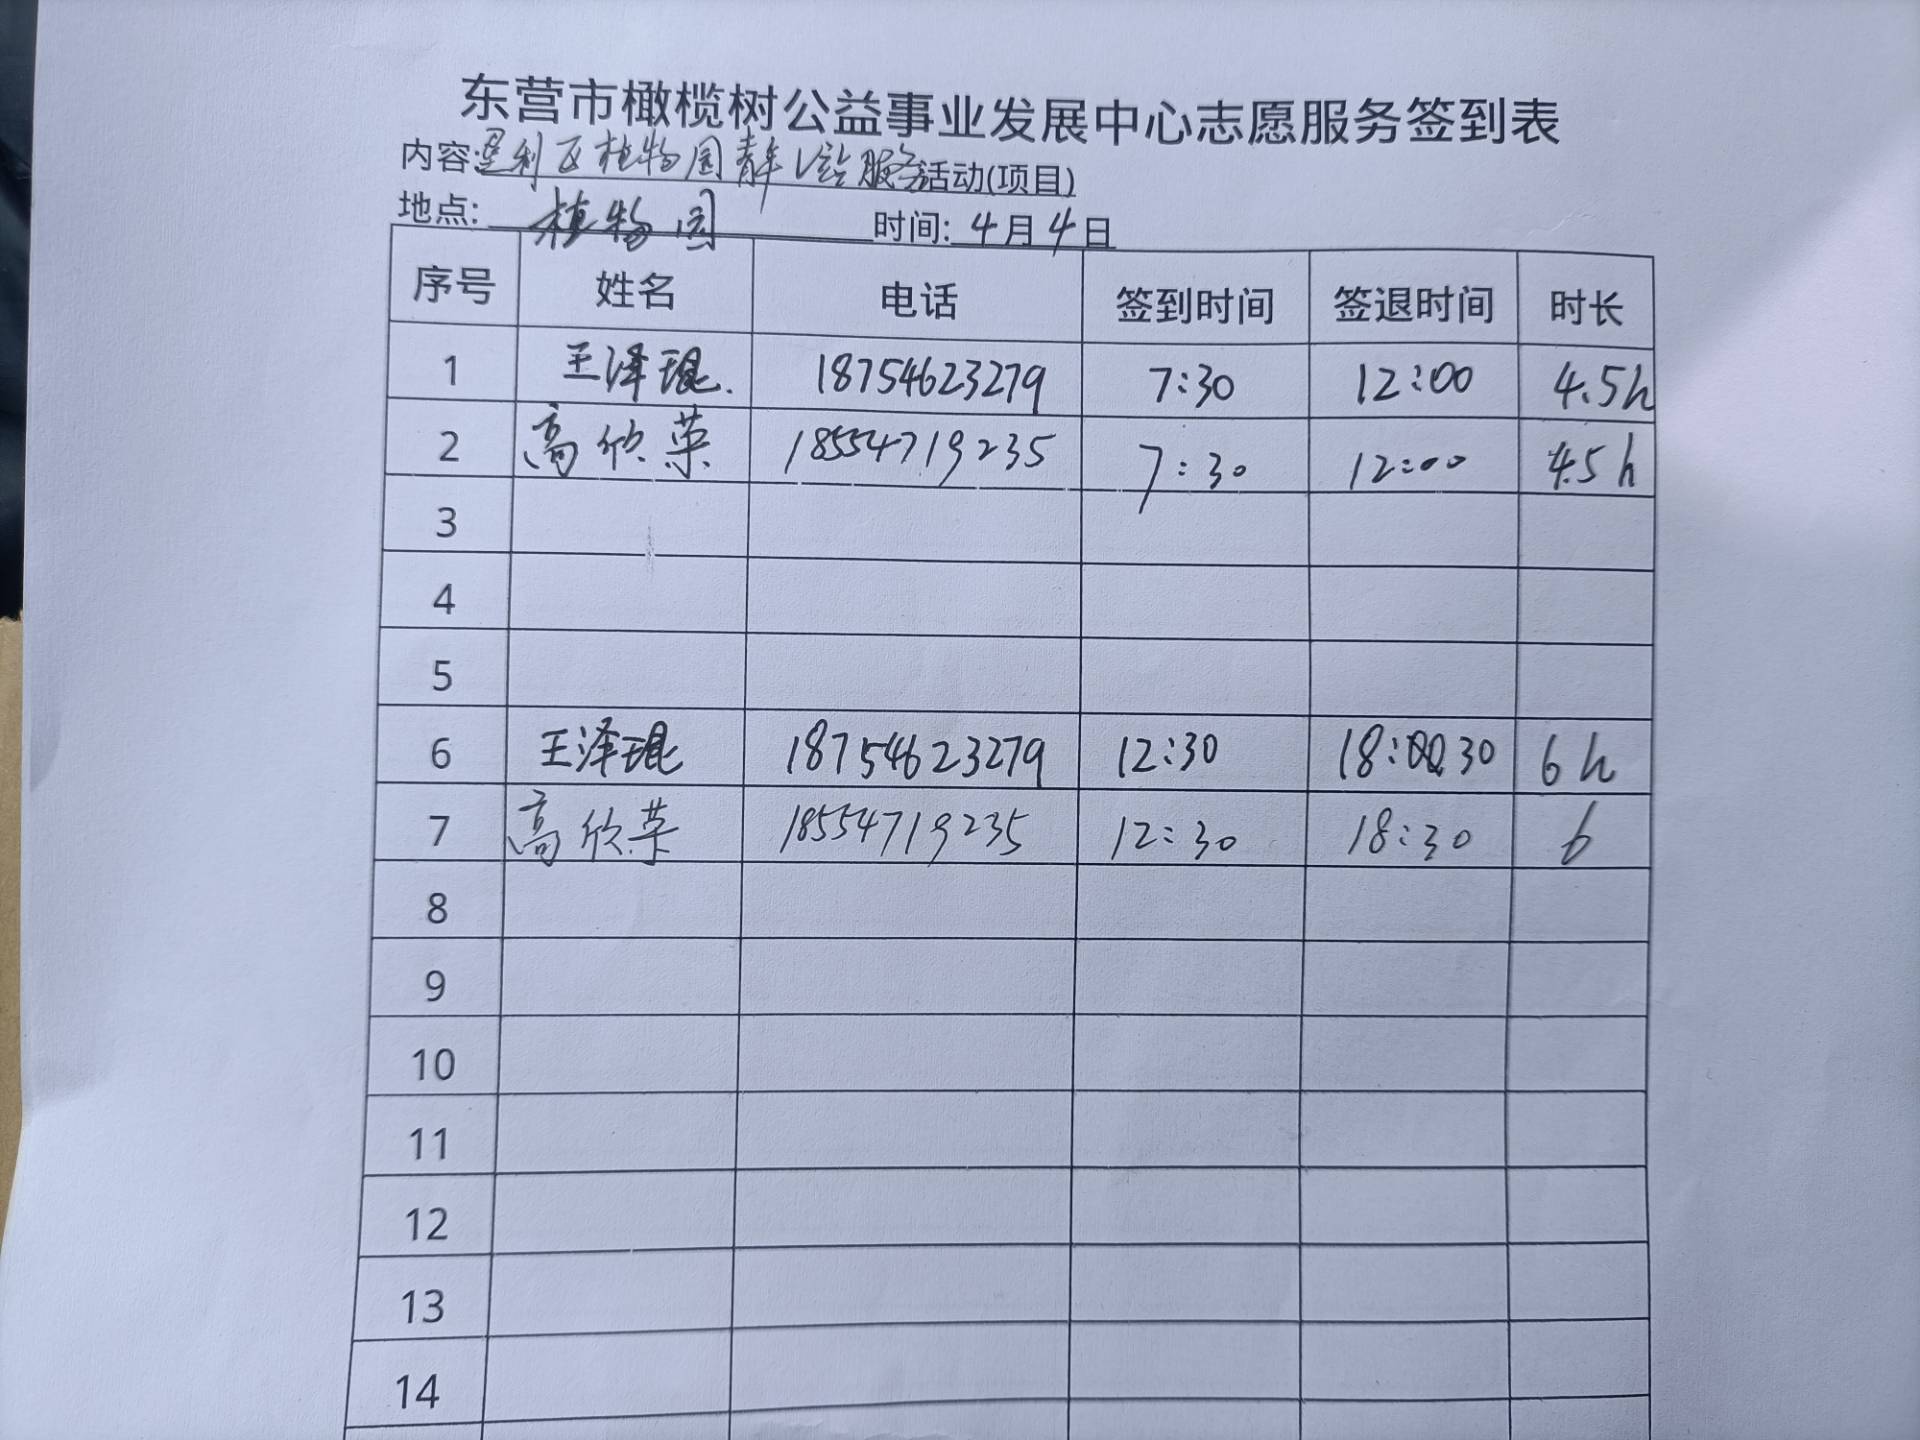 东营市橄榄树公益事业发展中心志愿服务签到表
内容:垦利区植物园青年V站服务活动(项目)
地点: 植物园 时间: 4月4日
序号 姓名 电话 签到时间 签退时间 时长
1 王泽琨. 18754623279 7:30 12:00 4.5h
2 高欣荣 18554719235 7:30 12:00 4.5h
3
4
5
6 王泽琨 18754623279 12:30 18:30 6h
7 高欣荣 18554719235 12:30 18:30 6
8
9
10
11
12
13
14